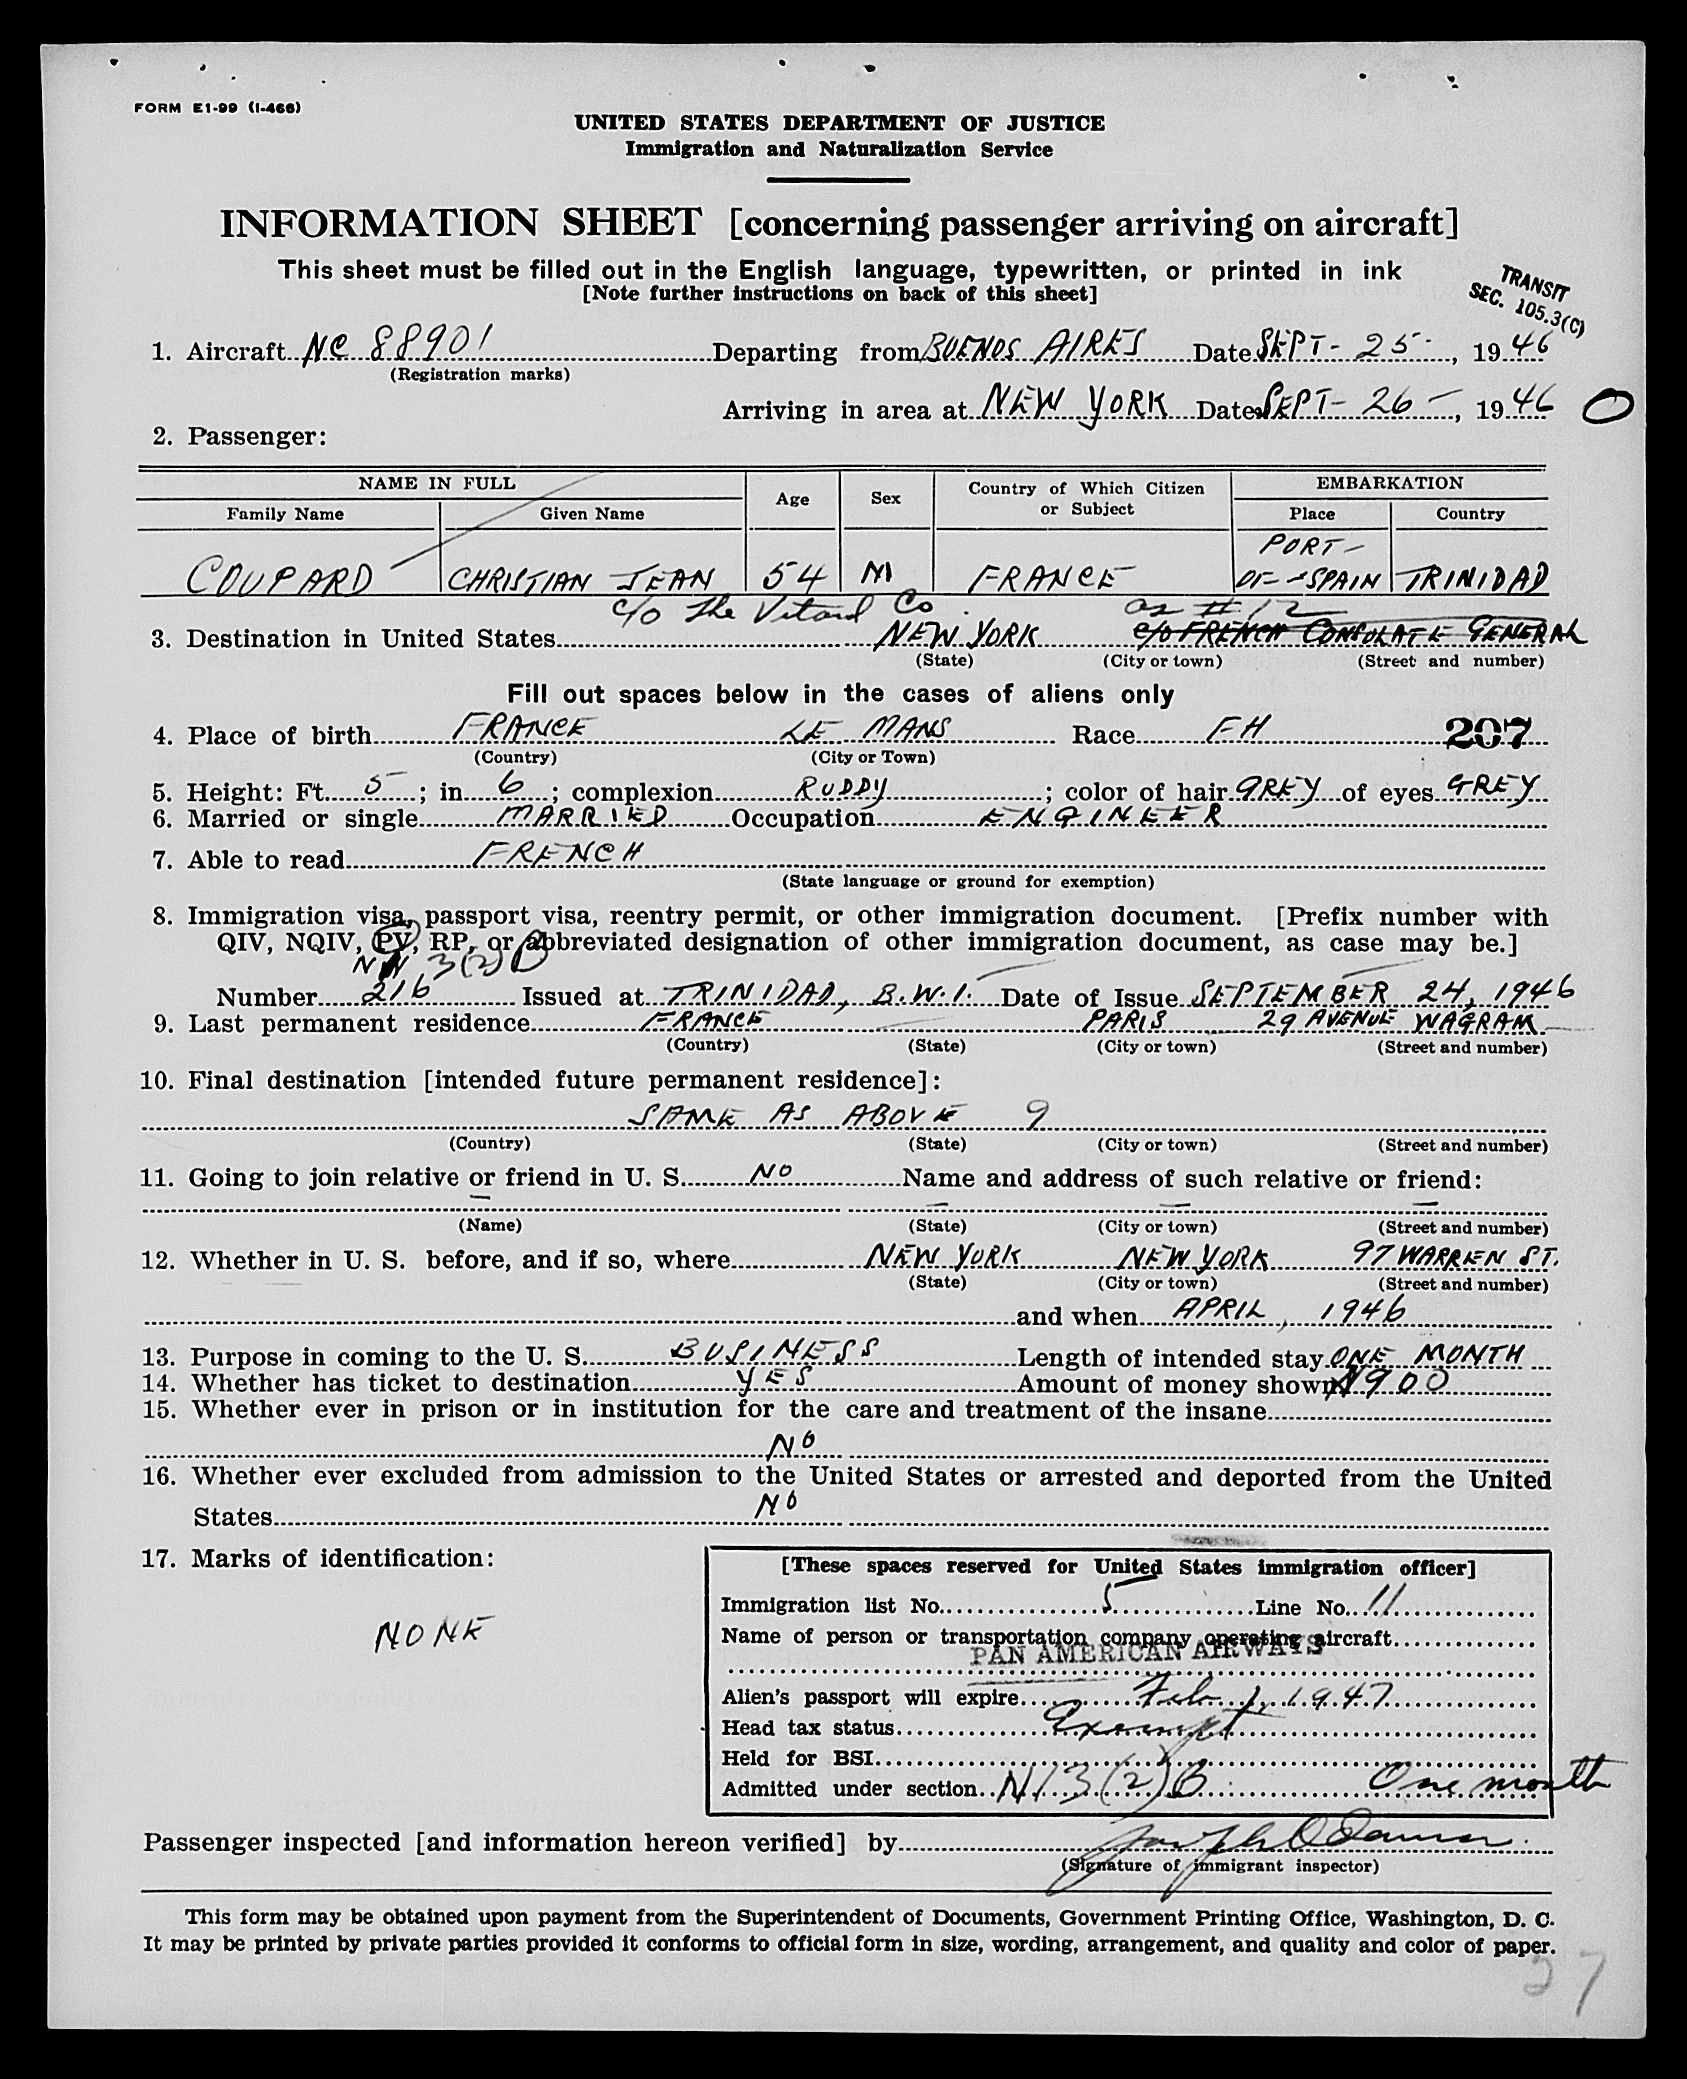 FORM E1-99 (I-466)
UNITED STATES DEPARTMENT OF JUSTICE
Immigration and Naturalization Service
INFORMATION SHEET [concerning passenger arriving on aircraft]
This sheet must be filled out in the English language, typewritten, or printed in ink
[Note further instructions on back of this sheet]
TRANSIT
SEC. 105.3(C)
1. Aircraft NC 88901 Departing from BUENOS AIRES Date SEPT- 25-, 1946
(Registration marks)
Arriving in area at NEW YORK Date SEPT- 26-, 1946 O
2. Passenger:
NAME IN FULL Age Sex Country of Which Citizen or Subject EMBARKATION
Family Name Given Name Place Country
COUPARD CHRISTIAN JEAN 54 M FRANCE PORT-OF-SPAIN TRINIDAD
c/o The Co. as # 12
3. Destination in United States NEW YORK c/o FRENCH CONSULATE GENERAL
(State) (City or town) (Street and number)
Fill out spaces below in the cases of aliens only
4. Place of birth FRANCE LE MANS Race FH 207
(Country) (City or Town)
5. Height: Ft. 5; in. 6; complexion RUDDY; color of hair GREY of eyes GREY
6. Married or single MARRIED Occupation ENGINEER
7. Able to read FRENCH
(State language or ground for exemption)
8. Immigration visa, passport visa, reentry permit, or other immigration document. [Prefix number with
QIV, NQIV, PV, RP, or abbreviated designation of other immigration document, as case may be.]
3(2)B
Number 216 Issued at TRINIDAD, B.W.I. Date of Issue SEPTEMBER 24, 1946
9. Last permanent residence FRANCE PARIS 29 AVENUE WAGRAM
(Country) (State) (City or town) (Street and number)
10. Final destination [intended future permanent residence]:
SAME AS ABOVE 9
(Country) (State) (City or town) (Street and number)
11. Going to join relative or friend in U. S. NO Name and address of such relative or friend:
— — — —
(Name) (State) (City or town) (Street and number)
12. Whether in U. S. before, and if so, where NEW YORK NEW YORK 97 WARREN ST.
(State) (City or town) (Street and number)
and when APRIL, 1946
13. Purpose in coming to the U. S. BUSINESS Length of intended stay ONE MONTH
14. Whether has ticket to destination YES Amount of money shown $900
15. Whether ever in prison or in institution for the care and treatment of the insane
NO
16. Whether ever excluded from admission to the United States or arrested and deported from the United
States NO
17. Marks of identification:
NONE
[These spaces reserved for United States immigration officer]
Immigration list No. 5 Line No. 11
Name of person or transportation company operating aircraft
PAN AMERICAN AIRWAYS
Alien's passport will expire Feb. 1, 1947
Head tax status Exempt
Held for BSI
Admitted under section 3(2)B One month
Passenger inspected [and information hereon verified] by
(Signature of immigrant inspector)
This form may be obtained upon payment from the Superintendent of Documents, Government Printing Office, Washington, D. C.
It may be printed by private parties provided it conforms to official form in size, wording, arrangement, and quality and color of paper.
27